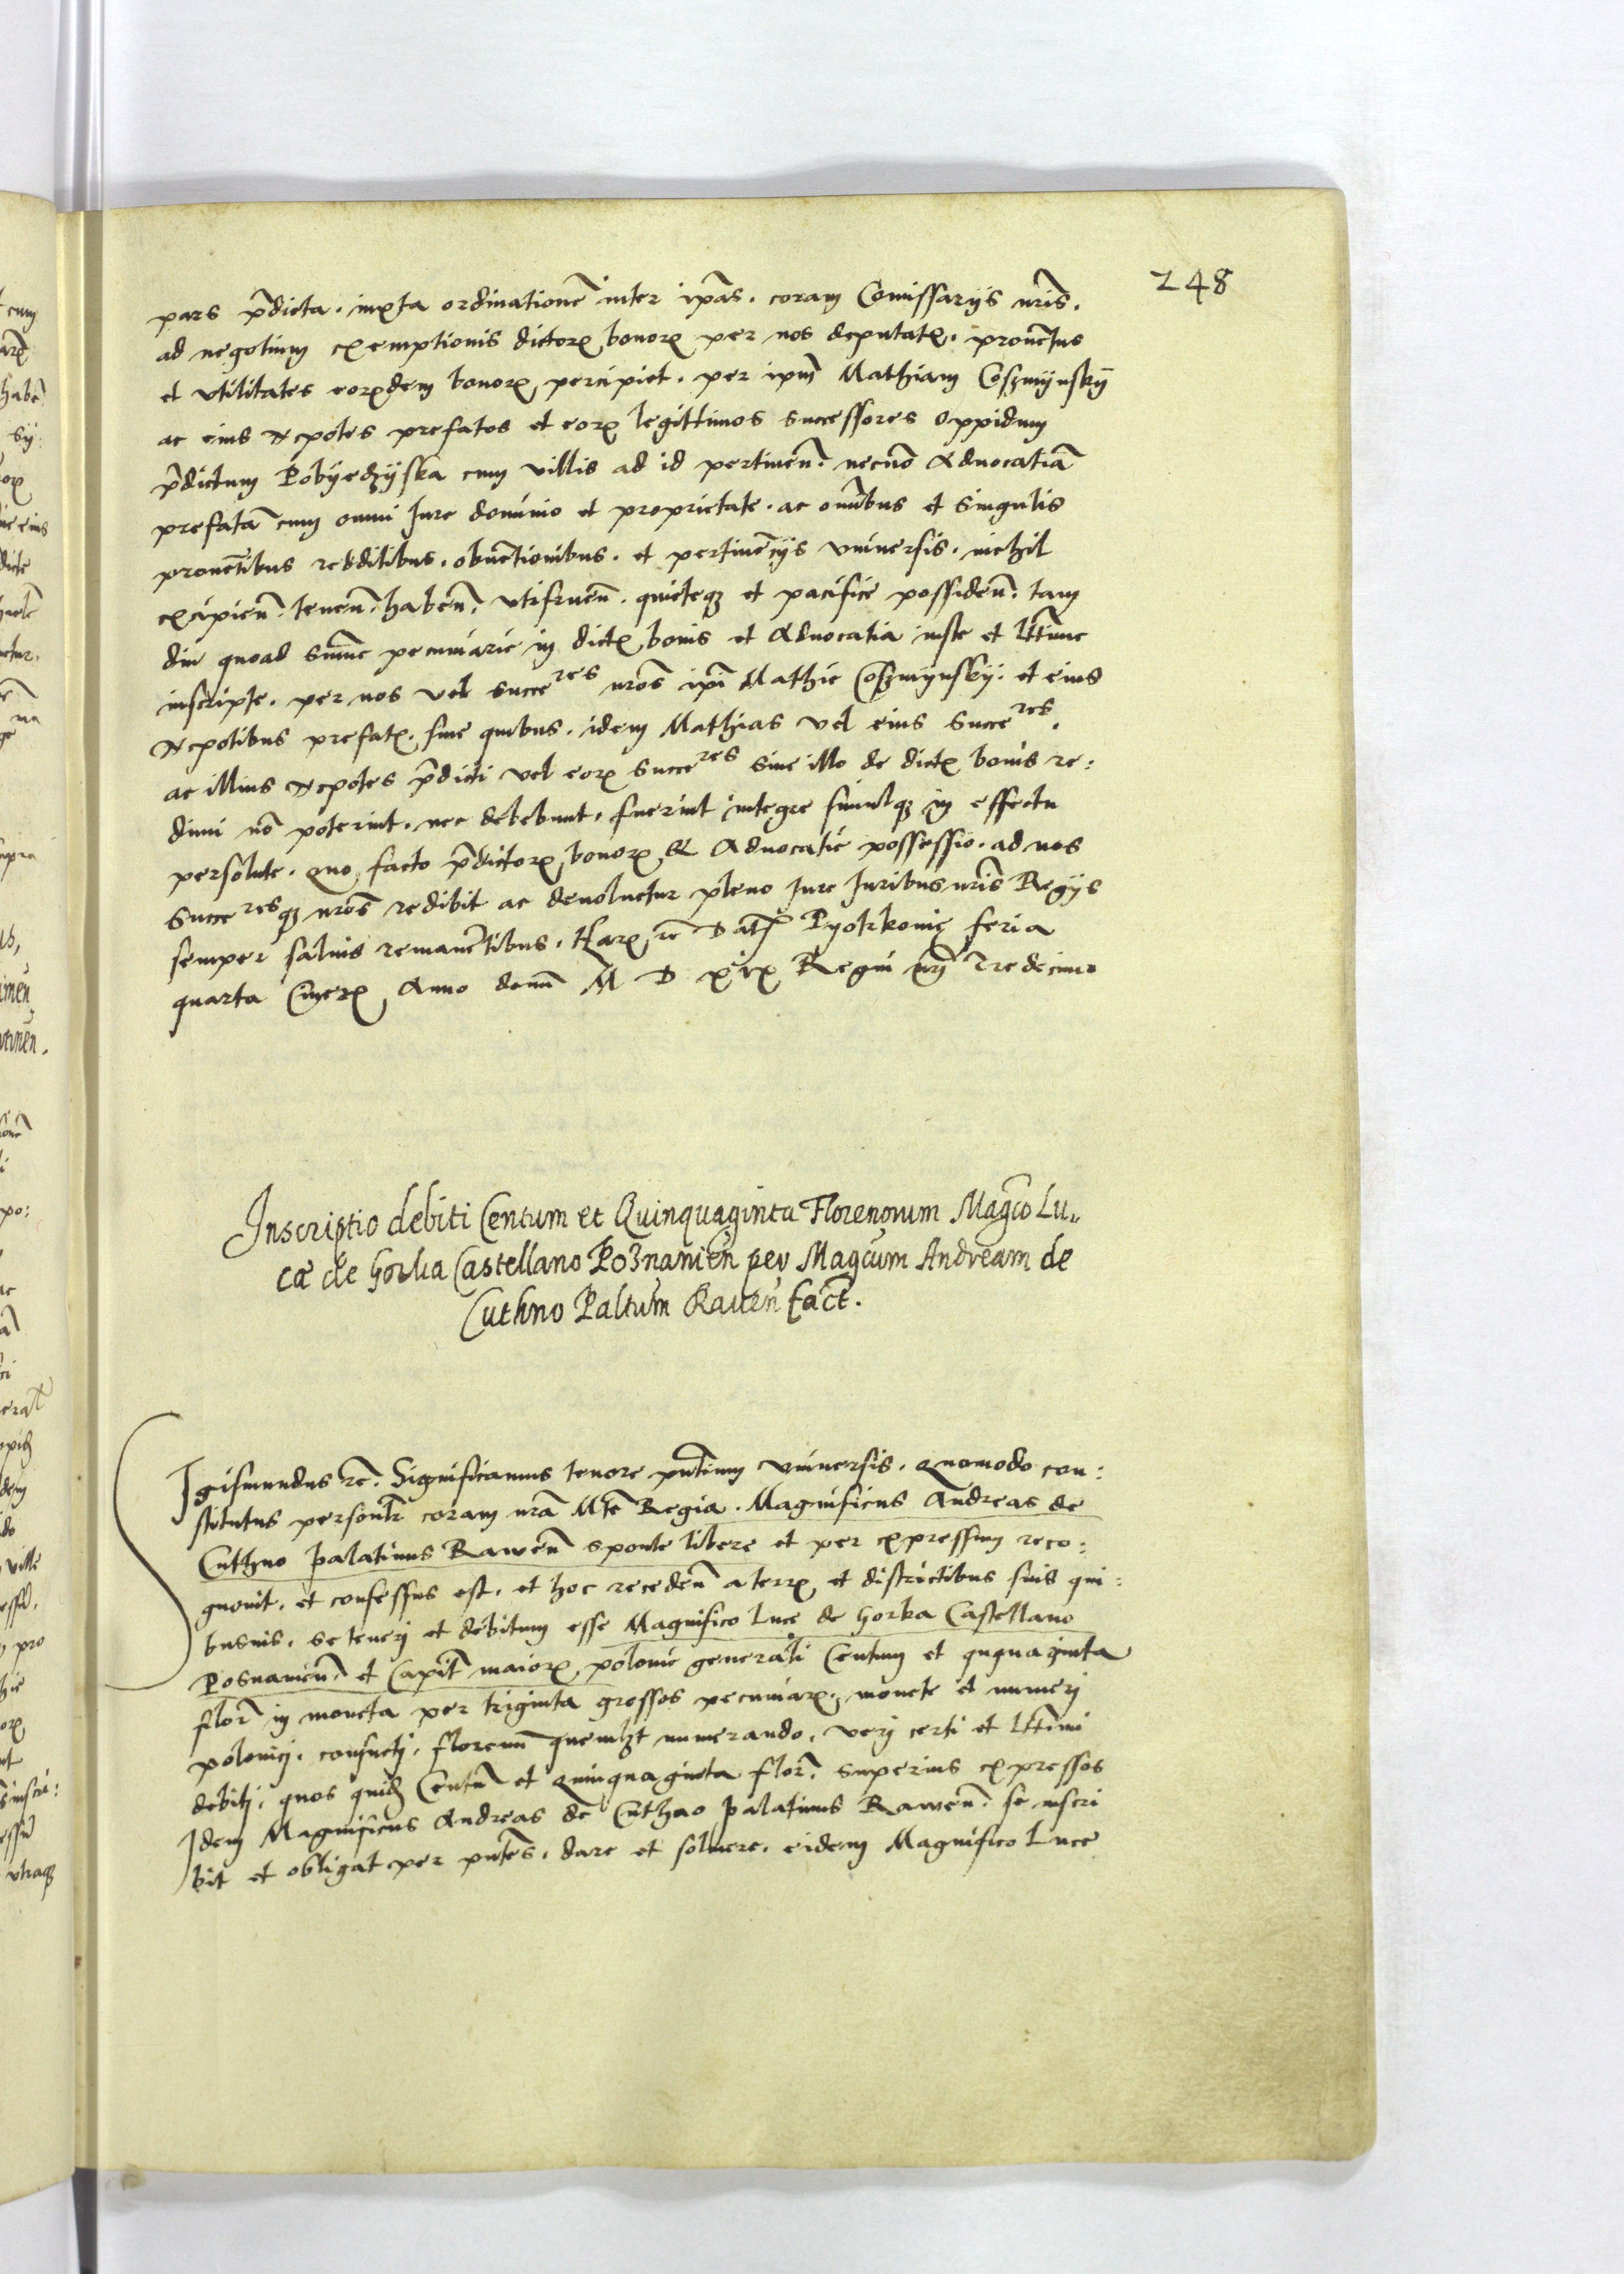 248
pars p̄dicta. iuxta ordinationē inter ip̄as. coram Com̄issarijs nr̄is.
ad negotium exemptionis dictorꝝ bonorꝝ per nos deputatꝝ. prouentus
et vtilitates eorꝝdem bonorꝝ percipiet. per ipm̄ Mathiam Coszmynskÿ
ac eius Nepotes prefatos et eorꝝ legittimos successores Oppidum
p̄dictum Pobÿedzÿska cum villis ad id pertinen̄. necno͞ Aduocatiā
prefatā cum omni Iure dominio et proprietate. ac om̄ibus et singulis
prouētibus redditibus. obuētionibus. et pertinēcijs vniuersis. nichil
excipien̄. tenen̄. haben̄. vtifruen̄. quieteqꝫ et pacifice possiden̄. tam
diu quoad sum̄e pecuniarie in dictꝝ bonis et Aduocatia iuste et lt̄time
inscripte. per nos vel succeres nr̄os ipi̅ Mathie Coszmÿnskÿ. et eius
Nepotibus prefatꝝ. siue quibus. idem Mathias vel eius succeres.
ac illius Nepotes p̄dicti vel eorꝝ succeres siue illo de dictꝝ bonis re:
dimi no͞ poterint. nec debebunt. fuerint integre simulqꝫ in effectu
persolute. quo facto p̄dictorꝝ bonorꝝ & Aduocatie possessio. ad nos
succeresqꝫ nr̄os redibit ac deuoluetur pleno Iure Iuribus nr̄is Regijs
semper saluis remanētibus. Harꝝ rc̄ Datꝝ Pyotrkowie feria
quarta Cinerꝝ Anno domī M D xix Regni nr̄j Tredecimo
Inscriptio debiti Centum et Quinquaginta Florenorum Magc̄o Lu„
cæ de Gorka Castellano Poznanien̄ per Magc̄um Andream de
Cuthno Paltūm Rauen̄ fact̄.
Sigismundus rc̄. Significamus tenore pn̄tium vniuersis. quomodo con:
stitutus personlr̄ coram nr̄a M̄te Regia. Magnificus Andreas de
Cuthno Palatinus Rawen̄ sponte libere et per expressum reco:
gnouit. et confessus est. et hoc receden̄ a terrꝝ et districtibus suis qui:
busuis. se teneri et debitum esse Magnifico Luce de Gorka Castellano
Posnanien̄. et Capit̄ maiorꝝ polonie generali Centum et qnquaginta
flor̄ in moneta per triginta grossos pecuniarꝝ. monete et numerj
polonicj. consuetj. florenū quemlꝫt numerando. verj certi et lt̄timi
debitj. quos quidꝫ Centū et quinquaginta flor̄. superius expressos
Idem Magnificus Andreas de Cuthno Palatinus Rawen̄. se inscri
bit et obligat per pn̄tes. dare et soluere. eidem Magnifico Luce